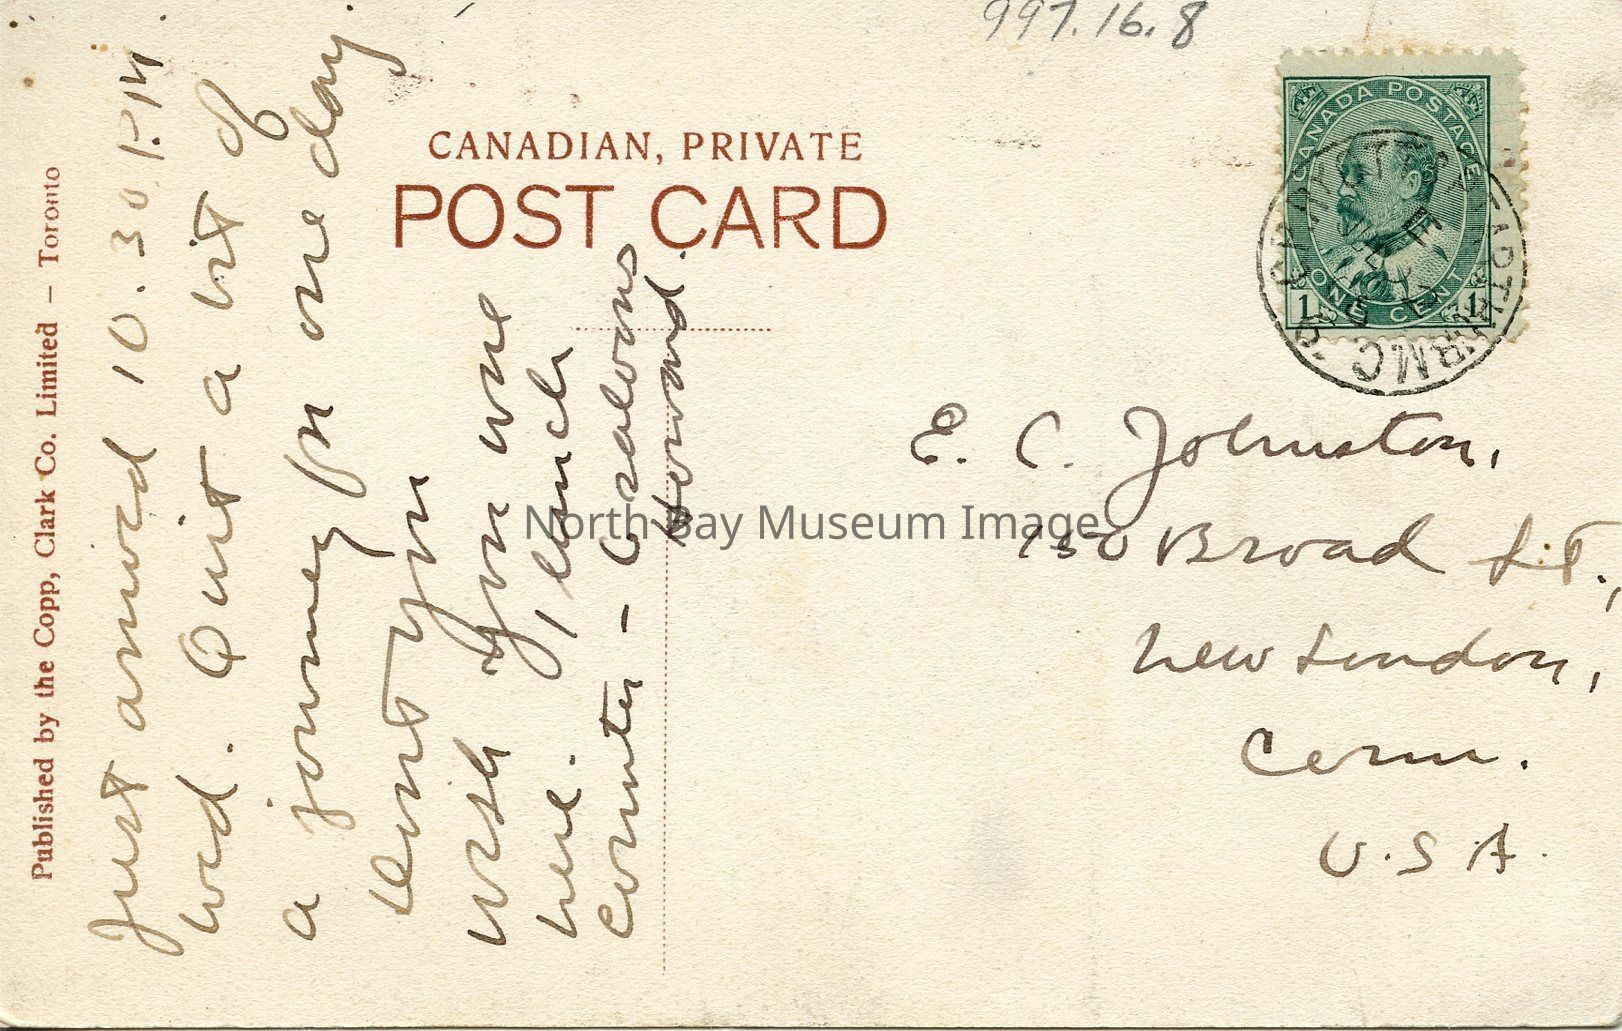 997.16.8
CANADIAN, PRIVATE
POST CARD
Published by the Copp, Clark Co. Limited – Toronto
Just arrived 10.30 P.M
Wed. Quit a bit of
a journey for one day
lent you
wish you were
here. 1 lunch
counter – 6 saloons
Howard.
CANADA POSTAGE
ONE CENT
1 1
R.M.C
E. C. Johnston,
130 Broad St.,
New London,
Conn.
U.S.A.
North Bay Museum Image